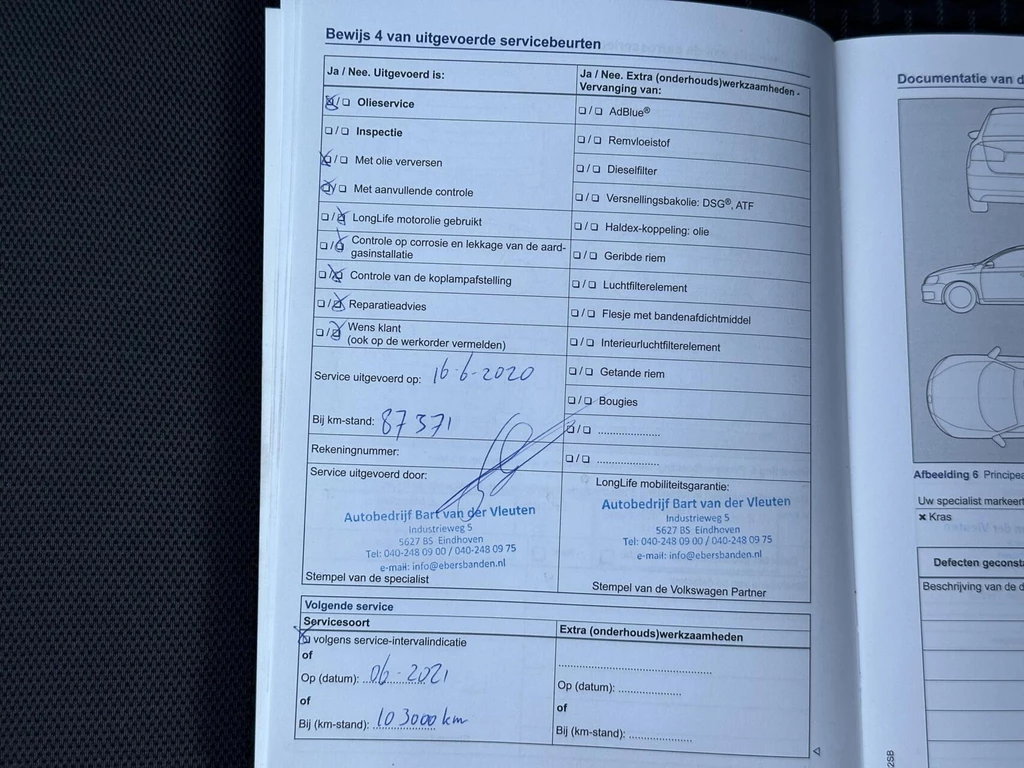 Bewijs 4 van uitgevoerde servicebeurten
Ja / Nee. Uitgevoerd is:
☒/☐ Olieservice
☐/☐ Inspectie
☒/☐ Met olie verversen
☒/☐ Met aanvullende controle
☐/☒ LongLife motorolie gebruikt
☐/☒ Controle op corrosie en lekkage van de aard-
gasinstallatie
☐/☒ Controle van de koplampafstelling
☐/☒ Reparatieadvies
☐/☒ Wens klant
(ook op de werkorder vermelden)
Service uitgevoerd op: 16-6-2020
Bij km-stand: 87371
Rekeningnummer:
Service uitgevoerd door:
Autobedrijf Bart van der Vleuten
Industrieweg 5
5627 BS Eindhoven
Tel: 040-248 09 00 / 040-248 09 75
e-mail: info@ebersbanden.nl
Stempel van de specialist
Ja / Nee. Extra (onderhouds)werkzaamheden -
Vervanging van:
☐/☐ AdBlue®
☐/☐ Remvloeistof
☐/☐ Dieselfilter
☐/☐ Versnellingsbakolie: DSG®, ATF
☐/☐ Haldex-koppeling: olie
☐/☐ Geribde riem
☐/☐ Luchtfilterelement
☐/☐ Flesje met bandenafdichtmiddel
☐/☐ Interieurluchtfilterelement
☐/☐ Getande riem
☐/☐ Bougies
☐/☐ ....................
☐/☐ ....................
LongLife mobiliteitsgarantie:
Autobedrijf Bart van der Vleuten
Industrieweg 5
5627 BS Eindhoven
Tel: 040-248 09 00 / 040-248 09 75
e-mail: info@ebersbanden.nl
Stempel van de Volkswagen Partner
Volgende service
Servicesoort
☒ volgens service-intervalindicatie
of
Op (datum): 06-2021
of
Bij (km-stand): 103000 km
Extra (onderhouds)werkzaamheden
Op (datum): ....................
of
Bij (km-stand): ....................
Documentatie van d
Afbeelding 6 Principea
Uw specialist markeert
× Kras
Defecten geconsta
Beschrijving van de d
2SB